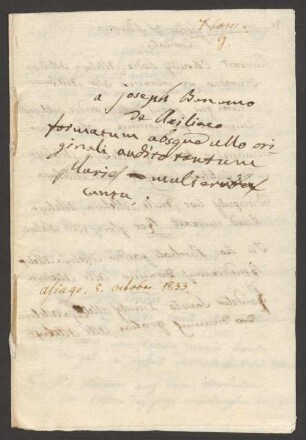 9.
a Joseph Bonomo
de Asiliaco
formatum absque ullo ori
ginali audito tantum
cantu.
asiago. 5. octobre 1833